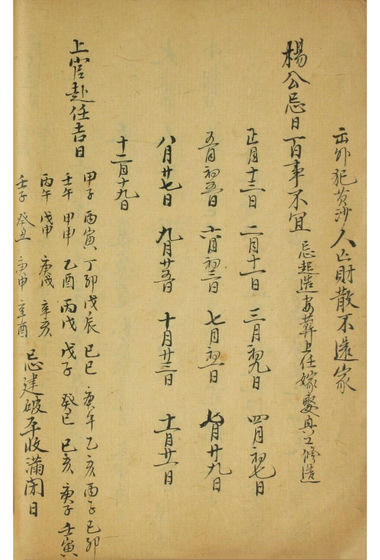 出外犯黄沙人亡財散不還家
楊公忌日百事不宜 忌起造安葬上任嫁娶興工修造
正月十三日 二月十一日 三月初九日 四月初七日
五月初五日 六月初三日 七月初一日 七月廿九日
八月廿七日 九月廿五日 十月廿三日 十一月廿一日
十二月十九日
上官赴任吉日
甲子 丙寅 丁卯 戊辰 己巳 庚午 乙亥 丙子 己卯
壬午 甲申 乙酉 丙戌 戊子 癸巳 己亥 庚子 壬寅
丙午 戊申 庚戌 辛亥
壬子 癸丑 庚申 辛酉 忌建破平收滿閉日